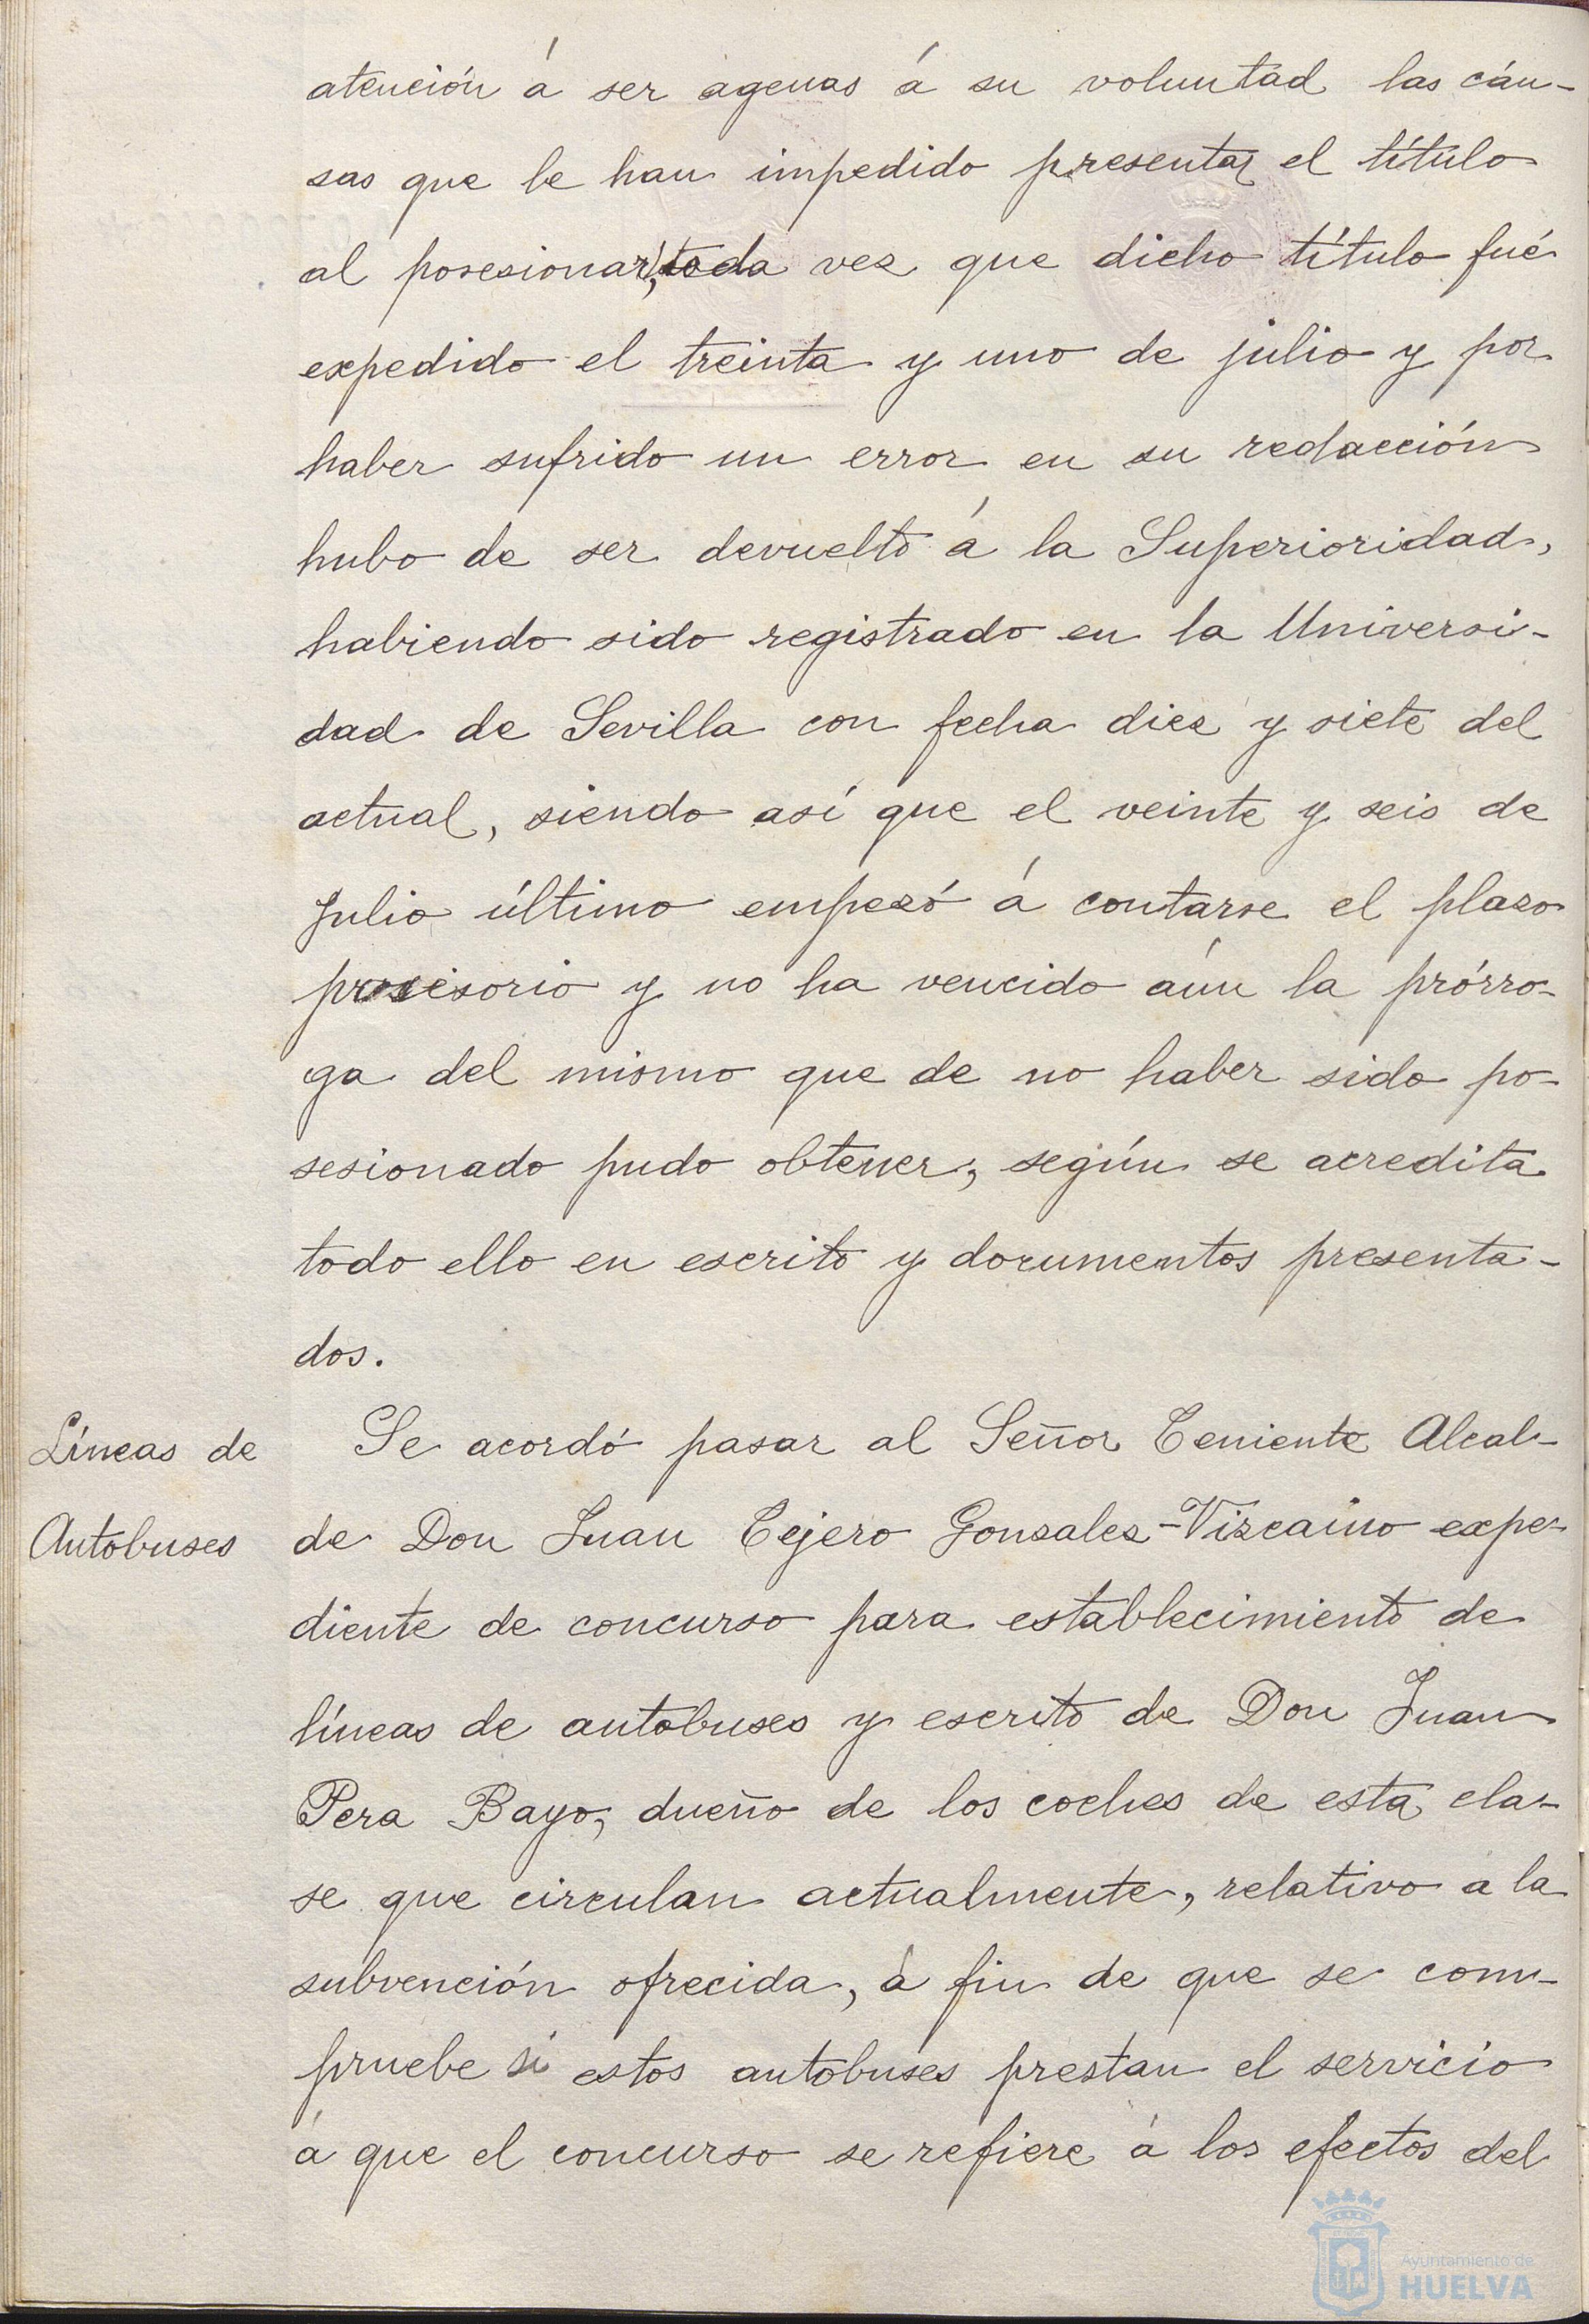 atención á ser agenas á su voluntad las cau-
sas que le han impedido presentar el título
al posesionar, toda vez que dicho título fué
expedido el treinta y uno de julio y por
haber sufrido un error en su redacción
hubo de ser devuelto á la Superioridad,
habiendo sido registrado en la Universi-
dad de Sevilla con fecha diez y siete del
actual, siendo así que el veinte y seis de
Julio último empezó á contarse el plazo
posesorio y no ha vencido aún la prórro-
ga del mismo que de no haber sido po-
sesionado pudo obtener, según se acredita
todo ello en escrito y documentos presenta-
dos.
Líneas de
Autobuses
Se acordó pasar al Señor Teniente Alcal-
de Don Juan Tejero Gonzalez-Vizcaino expe-
diente de concurso para establecimiento de
líneas de autobuses y escrito de Don Juan
Pera Bayo, dueño de los coches de esta cla-
se que circulan actualmente, relativo a la
subvención ofrecida, á fin de que se com-
pruebe si estos autobuses prestan el servicio
á que el concurso se refiere á los efectos del
Ayuntamiento de
HUELVA